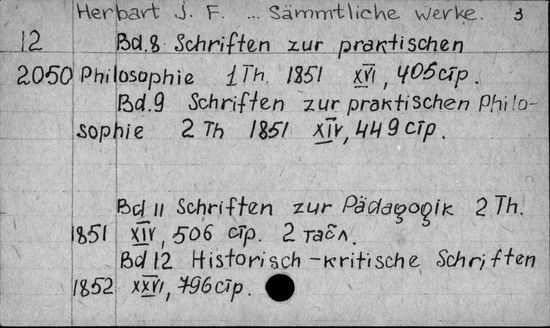 Herbart J. F. ... Sämmtliche werke. 3
12 Bd. 8. Schriften zur praktischen
2050 Philosophie 1 Th. 1851 XVI, 405 стр.
Bd. 9 Schriften zur praktischen Philo-
sophie 2 Th 1851 XIV, 449 стр.
Bd 11 Schriften zur Pädagogik 2 Th.
1851 XIV, 506 стр. 2 табл.
Bd 12 Historisch-kritische Schriften
1852 XXVI, 796 стр.